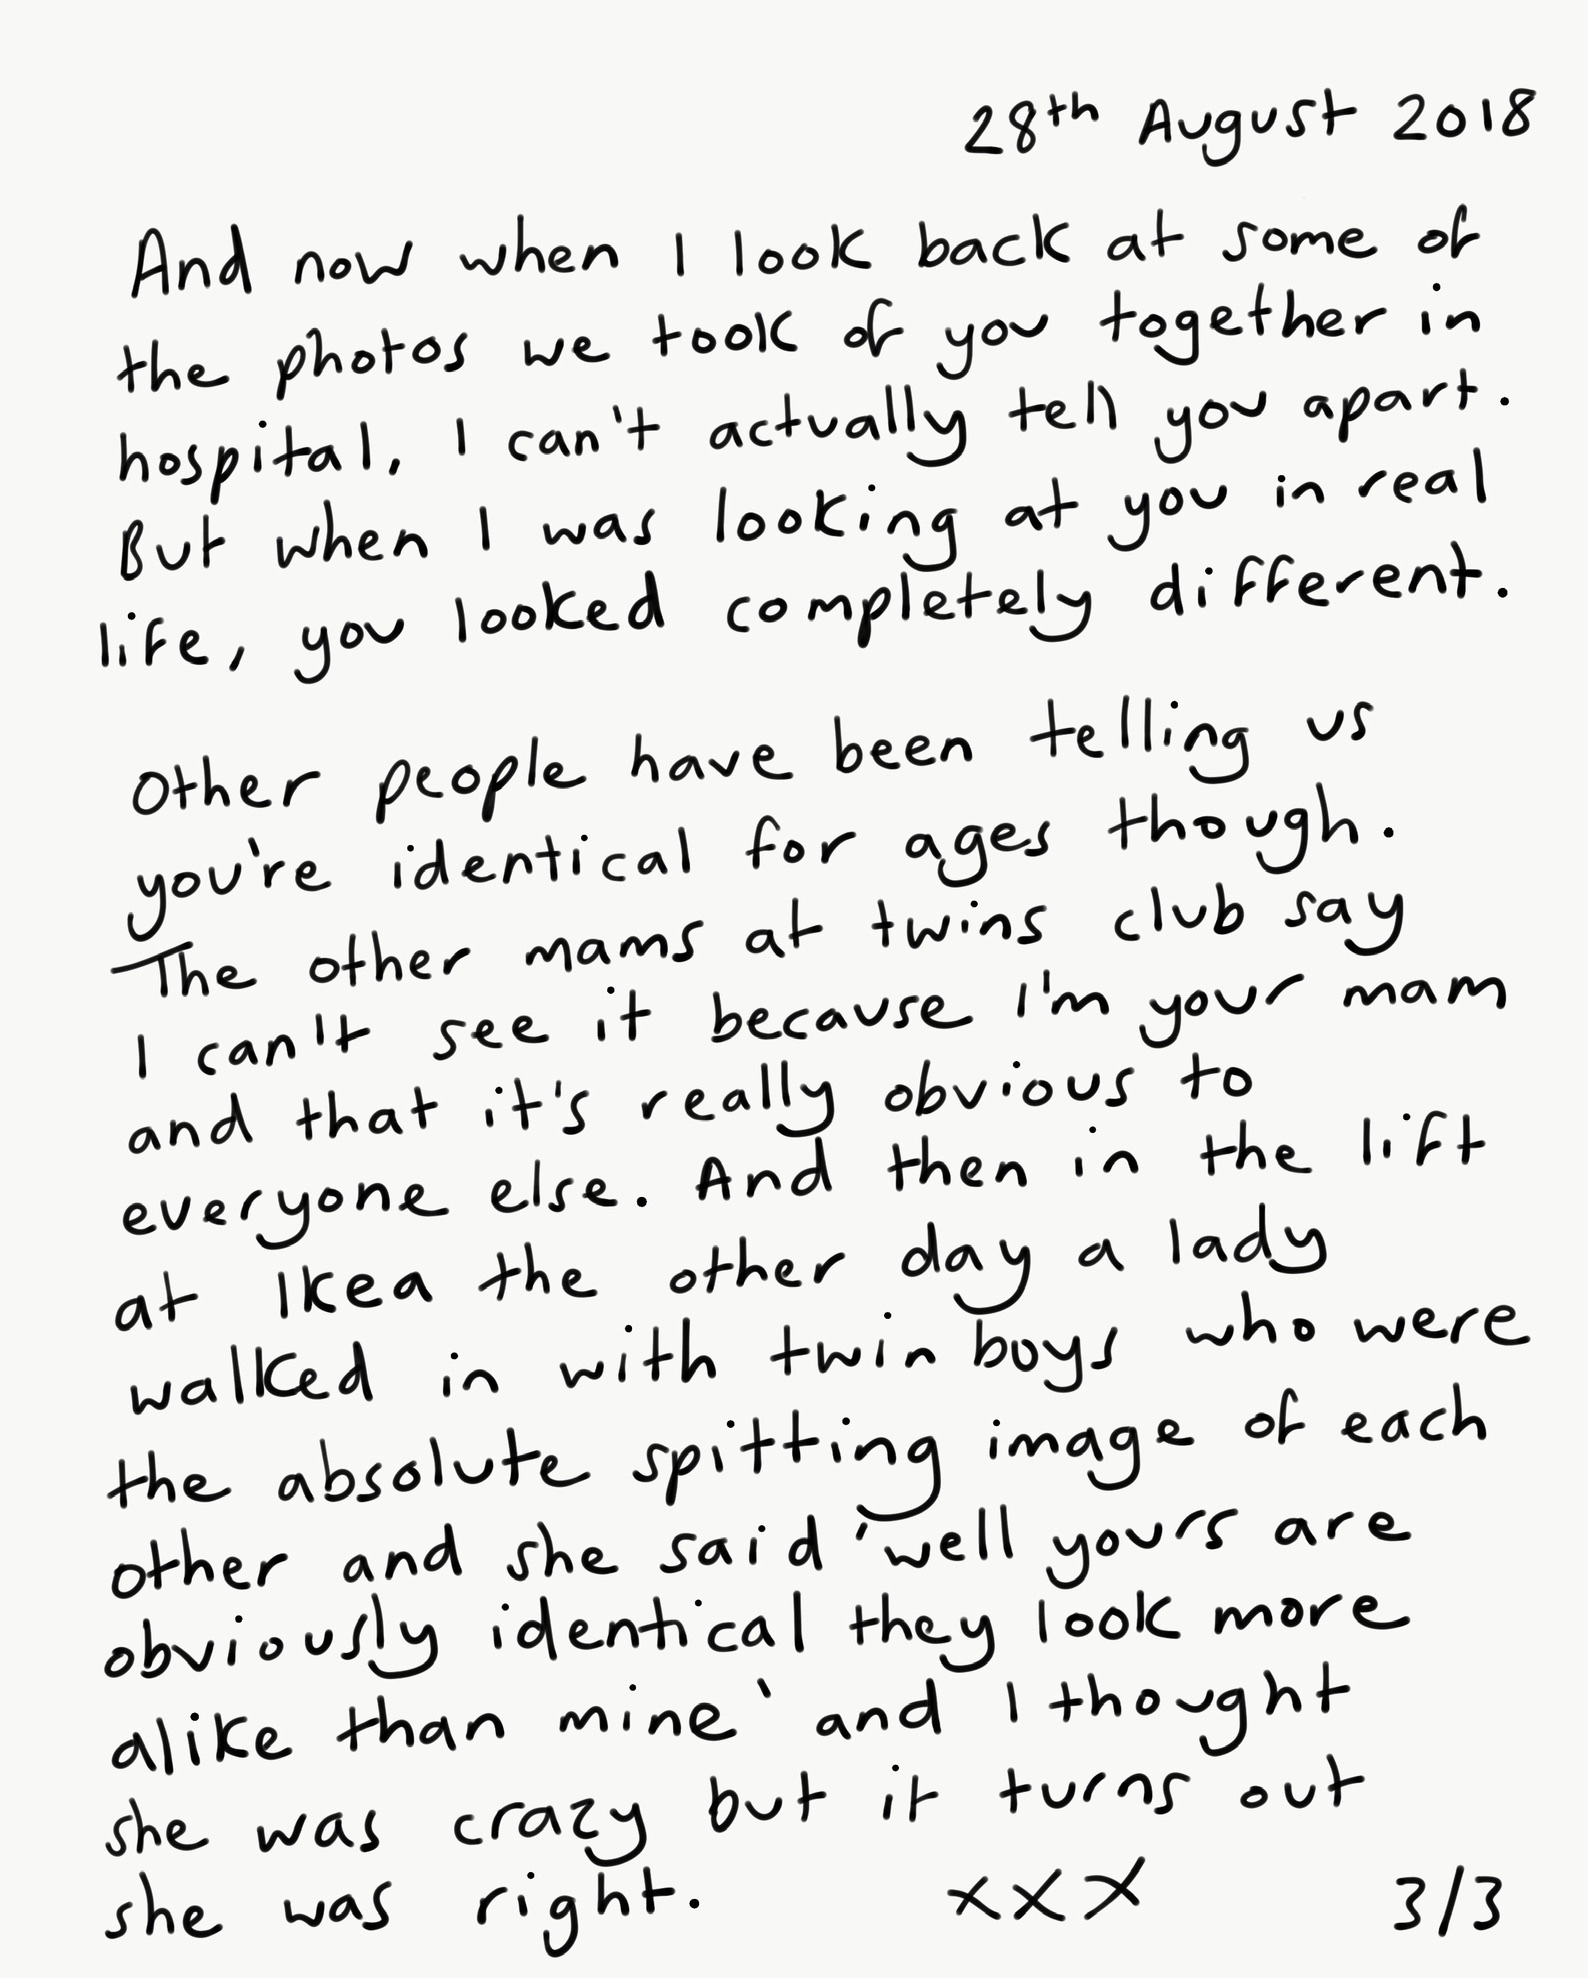 28th August 2018
And now when I look back at some of
the photos we took of you together in
hospital, I can't actually tell you apart.
But when I was looking at you in real
life, you looked completely different.
Other people have been telling us
you're identical for ages though.
The other mams at twins club say
I can't see it because I'm your mam
and that it's really obvious to
everyone else. And then in the lift
at Ikea the other day a lady
walked in with twin boys who were
the absolute spitting image of each
other and she said 'well yours are
obviously identical they look more
alike than mine' and I thought
she was crazy but it turns out
she was right. xxx 3/3